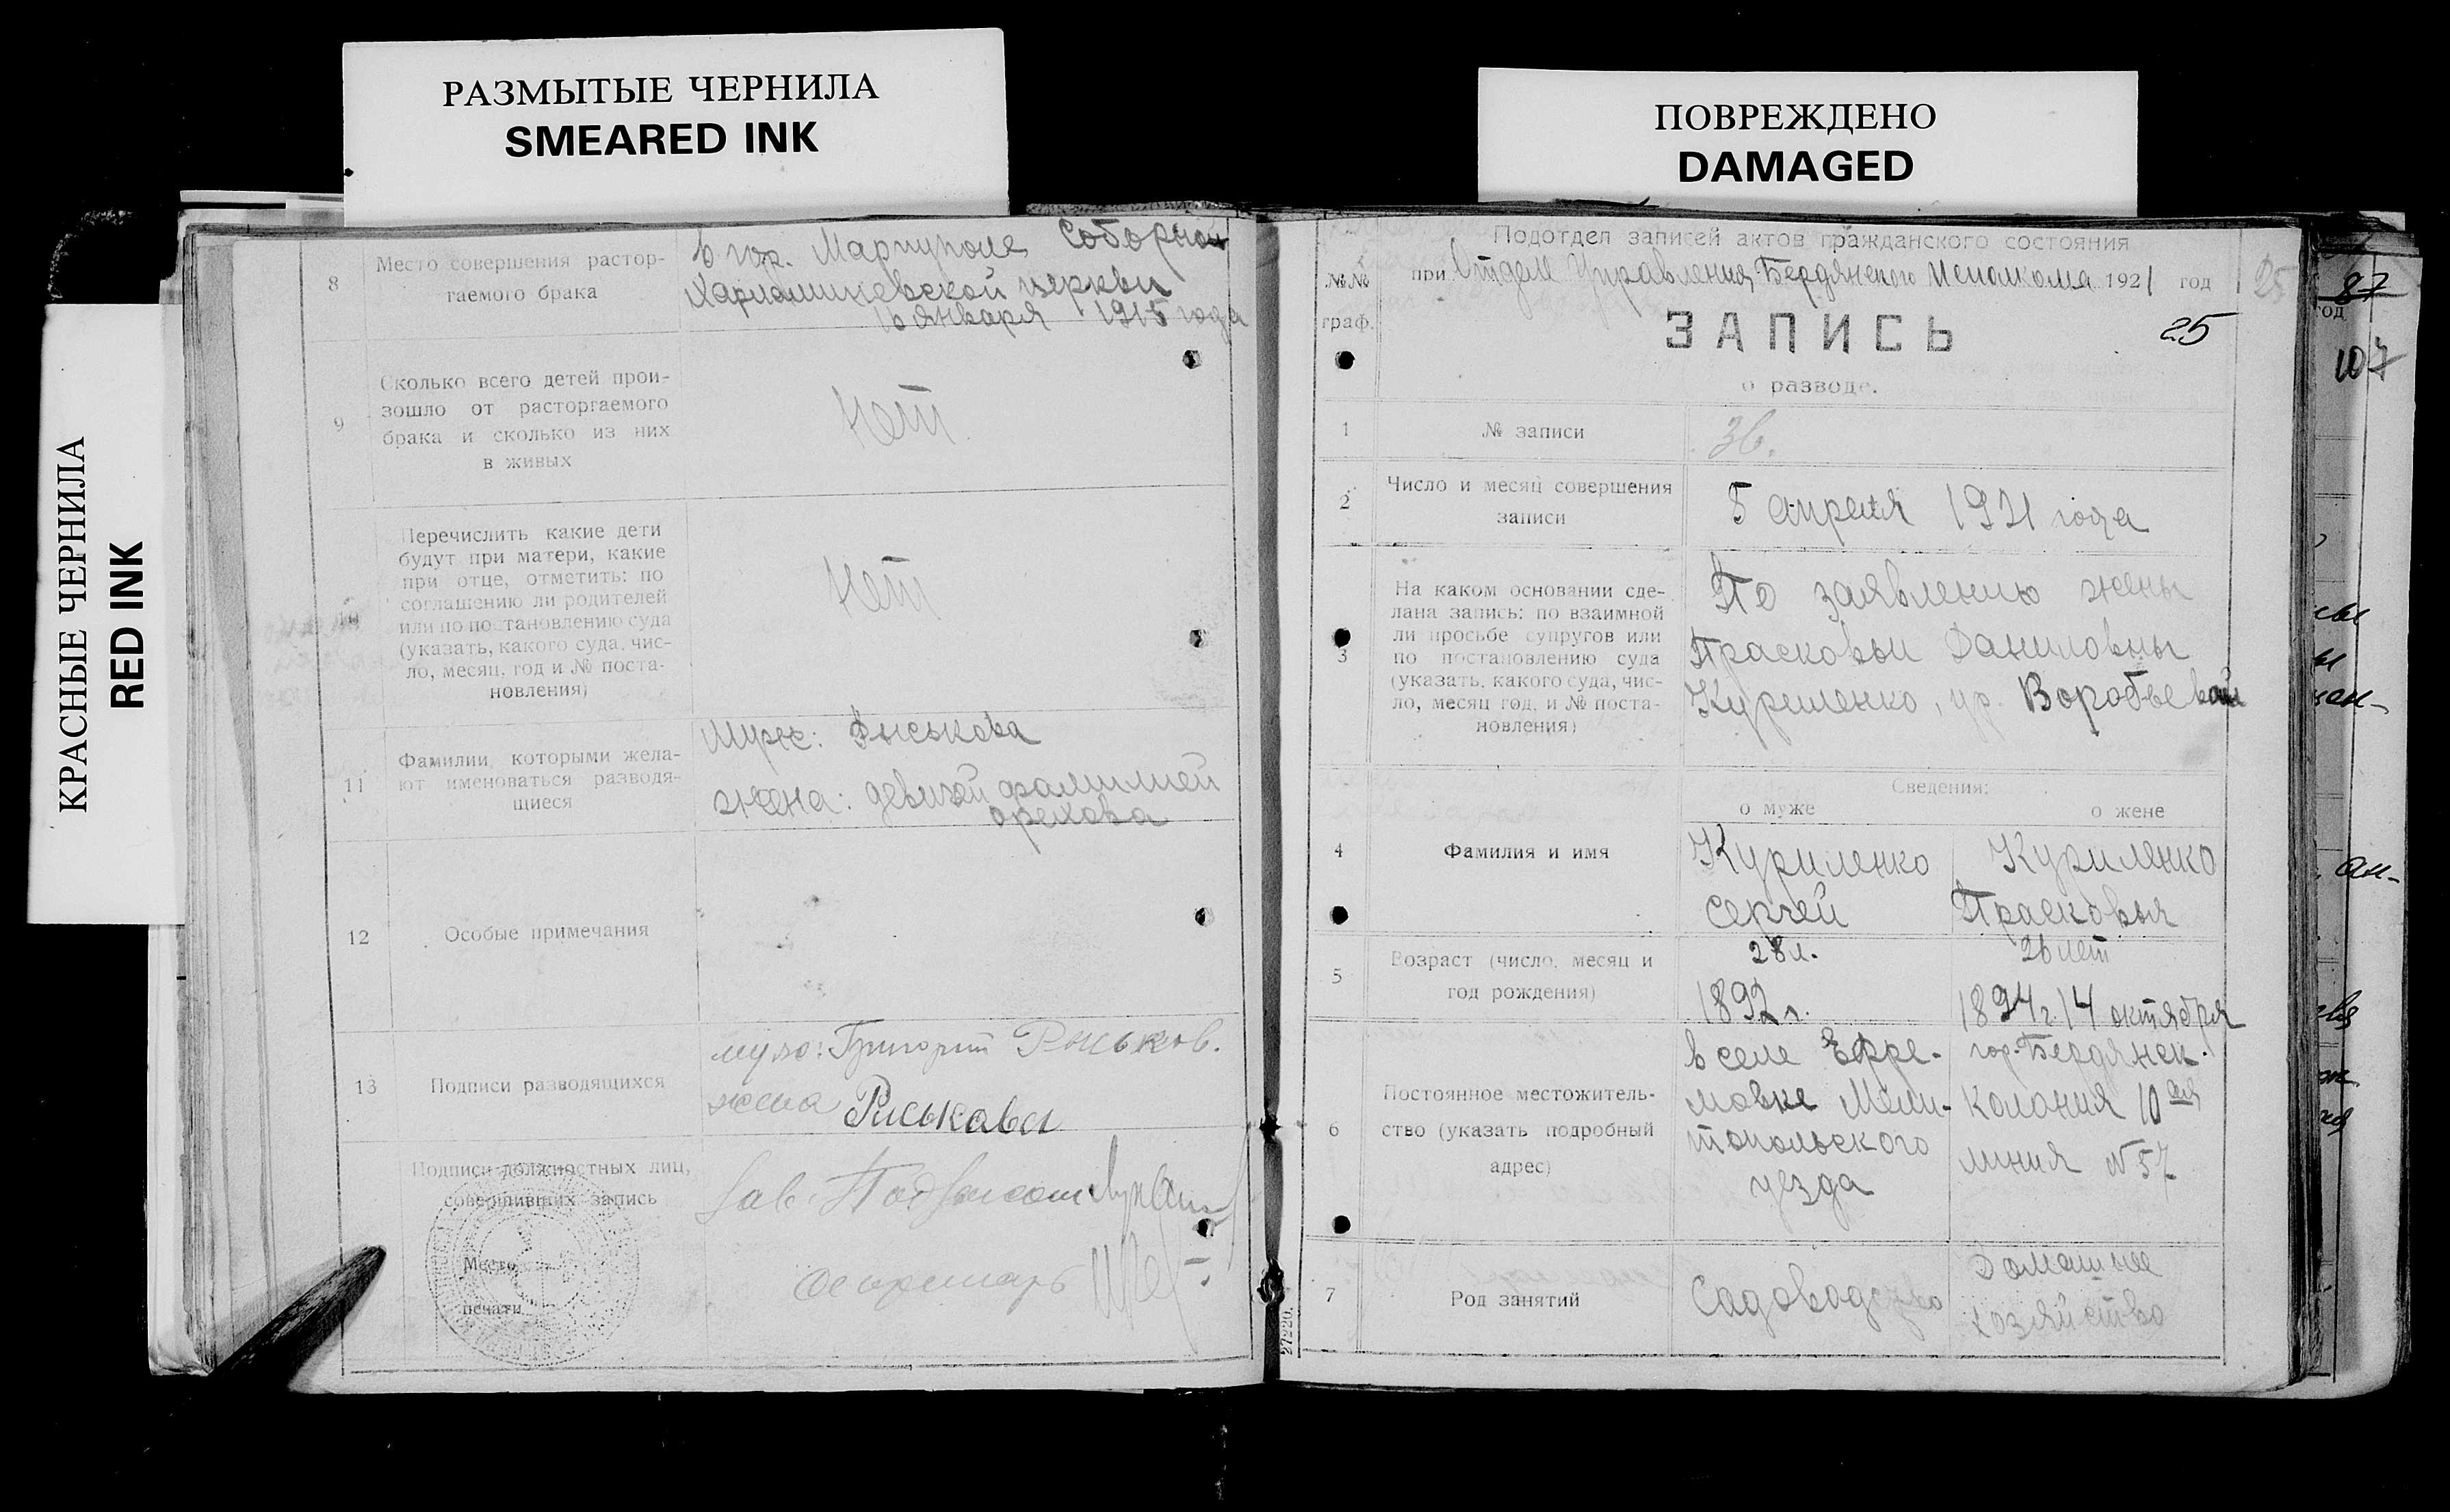 РАЗМЫТЫЕ ЧЕРНИЛА
SMEARED INK
ПОВРЕЖДЕНО
DAMAGED
КРАСНЫЕ ЧЕРНИЛА
RED INK
8
Место совершения растор-
гаемого брака
в гор. Мариуполе Соборной
Харлампиевской церкви
16 января 1915 года
9
Сколько всего детей прои-
зошло от расторгаемого
брака и сколько из них
в живых
Нет.
10
Перечислить какие дети
будут при матери, какие
при отце, отметить: по
соглашению ли родителей
или по постановлению суда
(указать, какого суда, чис-
ло, месяц, год и № поста-
новления)
Нет
11
Фамилии, которыми жела-
ют именоваться разводя-
щиеся
муж: Рыськова
жена: девичей фамилией
Орехова
12
Особые примечания
13
Подписи разводящихся
муж: Григорий Рыськов.
жена Рыськова
Подписи должностных лиц,
совершивших запись
Место
печати
Зав. Подзаписом
Секретарь
Подотдел записей актов гражданского состояния
№№
граф.
при Отделе Управления Бердянского Исполкома 1921 год
25
ЗАПИСЬ
25
о разводе.
1
№ записи
36.
2
Число и месяц совершения
записи
5 апреля 1921 года
3
На каком основании сде-
лана запись: по взаимной
ли просьбе супругов или
по постановлению суда
(указать, какого суда, чис-
ло, месяц год, и № поста-
новления)
По заявлению жены
Прасковьи Даниловны
Куриленко, ур. Воробьевой
Сведения:
о муже
о жене
4
Фамилия и имя
Куриленко
Сергей
Куриленко
Прасковья
5
Возраст (число, месяц и
год рождения)
28 л.
1892 г.
26 лет
1894 г. 14 октября
6
Постоянное местожитель-
ство (указать подробный
адрес)
в селе Ефре-
мовке Мели-
топольского
уезда
гор. Бердянск.
колония 10 ая
линия № 57
7
Род занятий
Садоводство
Домашнее
хозяйство
27220.
87
год
107